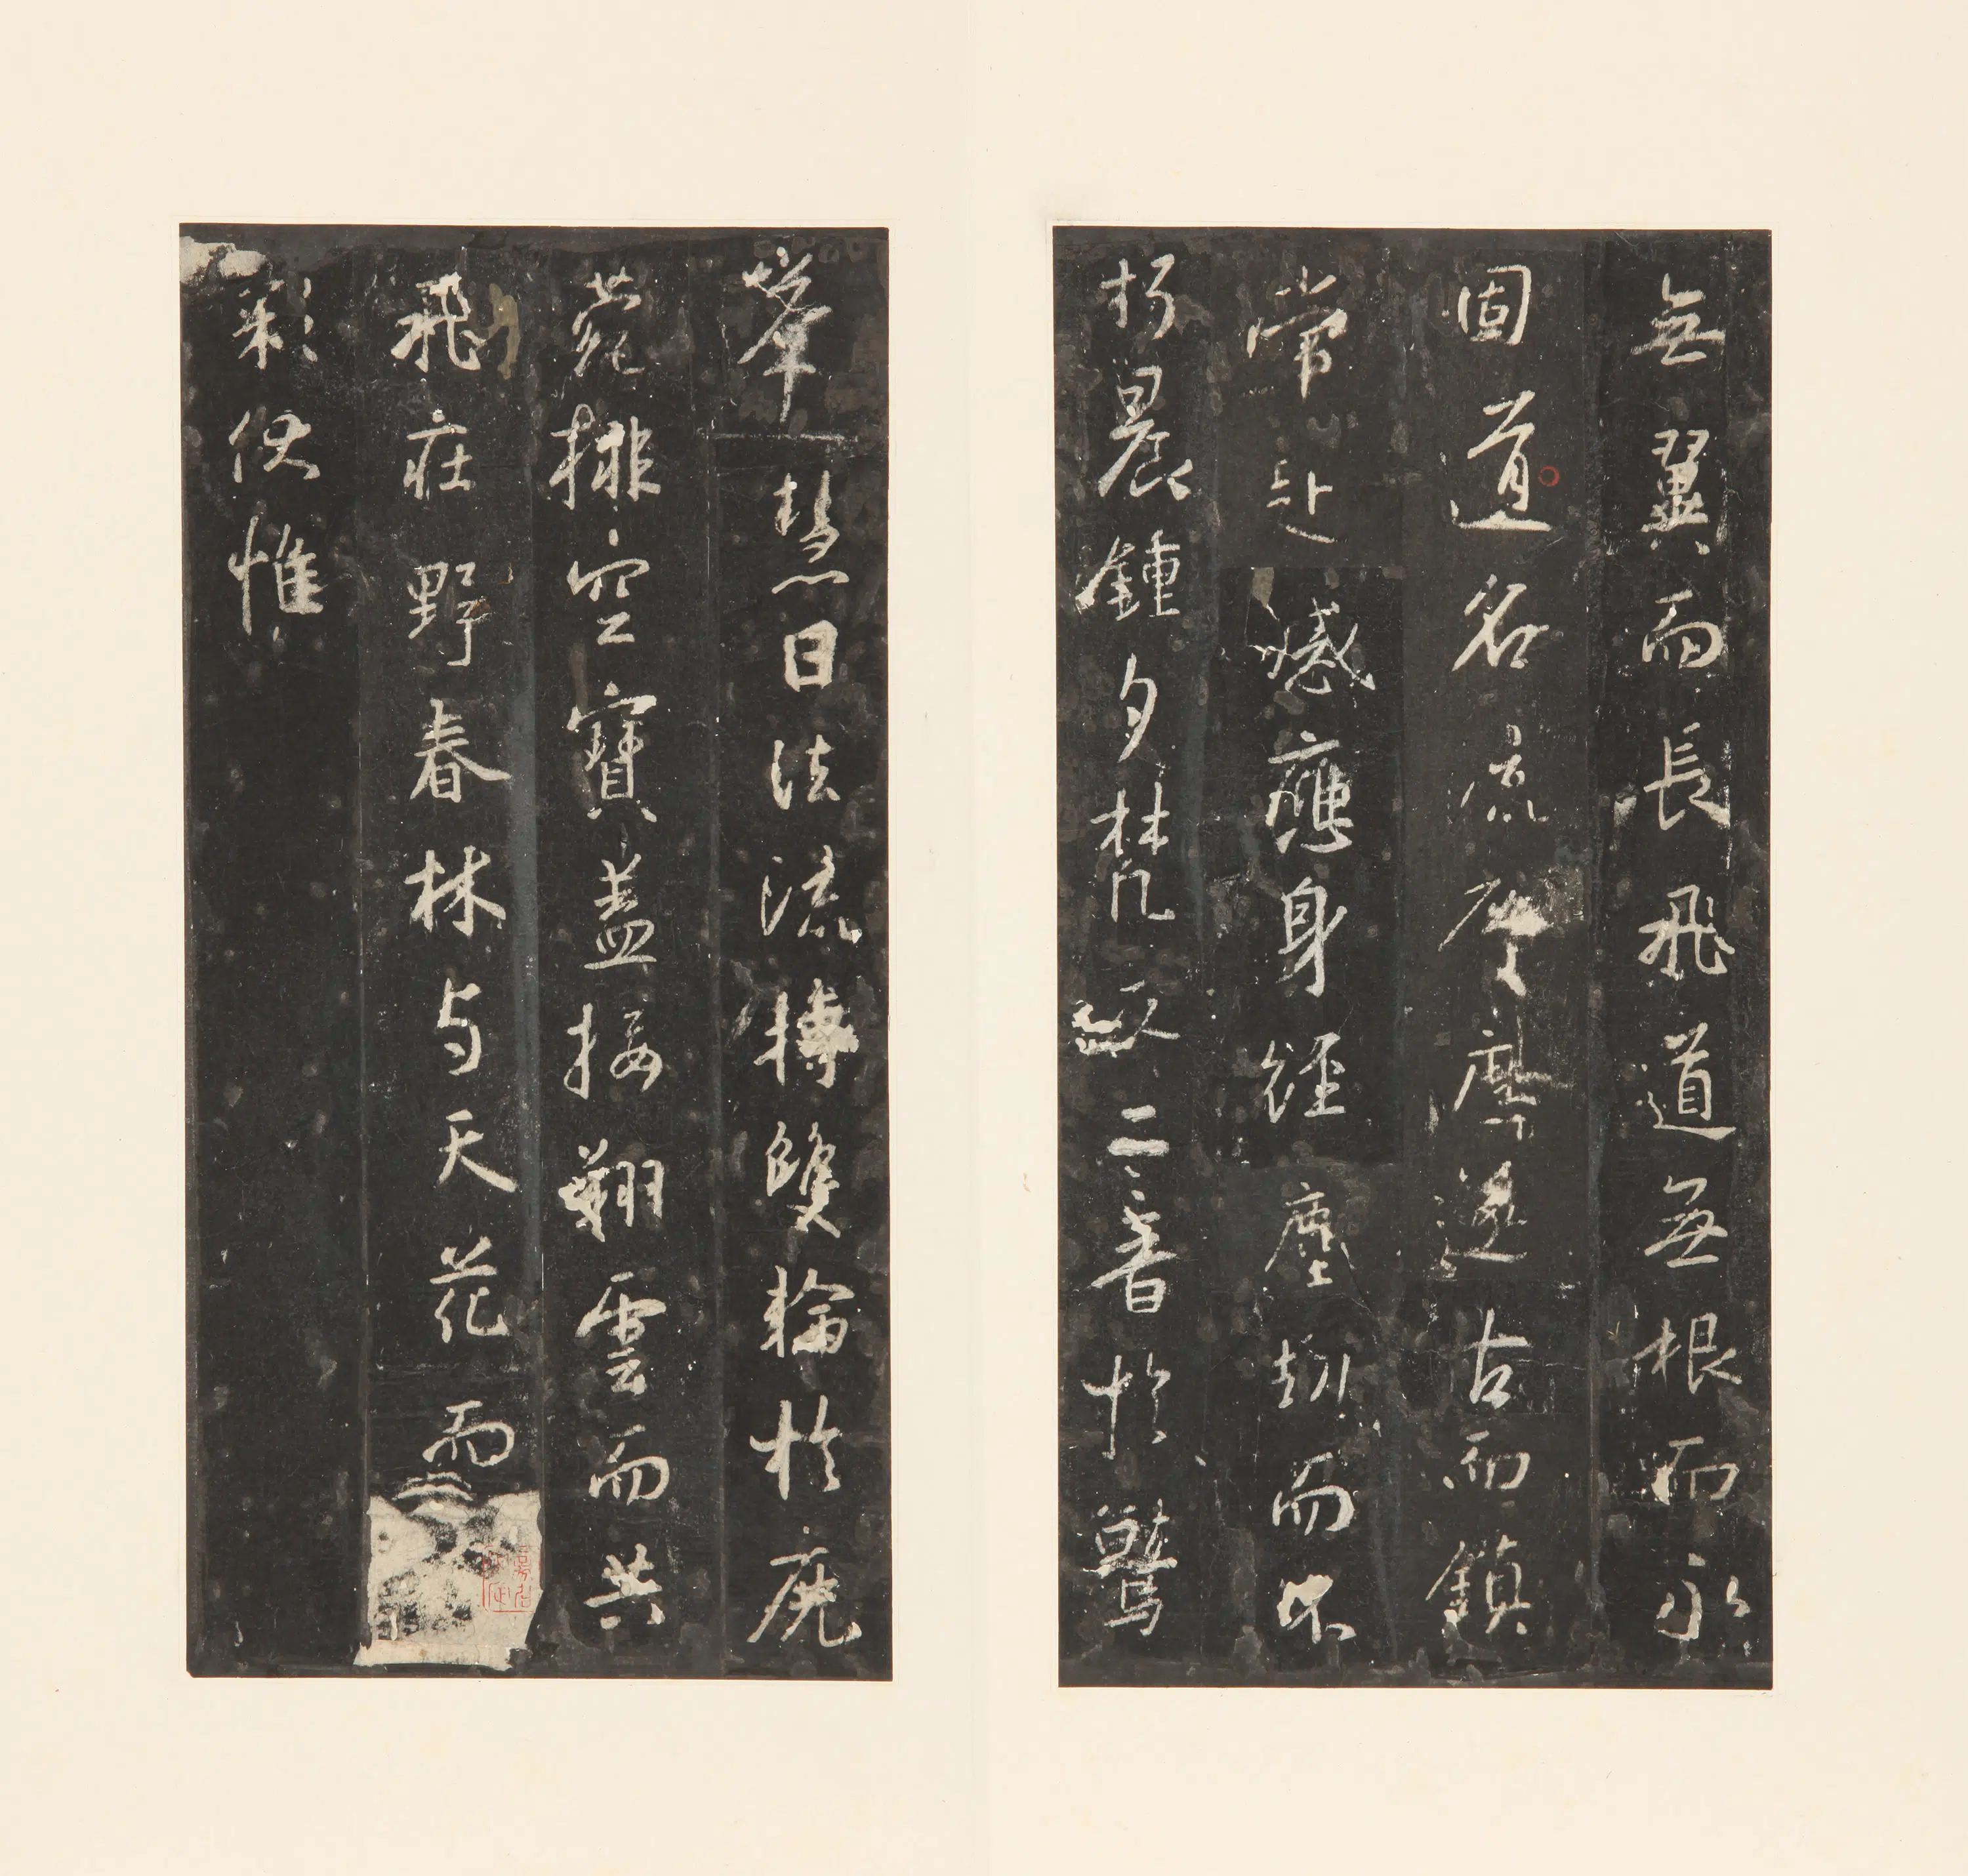 無翼而長飛道無根而永
固道名流慶歷遂古而鎮
常赴感應身經塵劫而不
朽晨鍾夕梵交二音於鷲
峯慧日法流轉雙輪於鹿
菀排空寶蓋接翔雲而共
飛莊野春林与天花而
彩伏惟